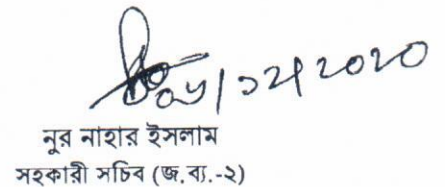 /১২/২০২০
নুর নাহার ইসলাম
সহকারী সচিব (জ.ব্য.-২)